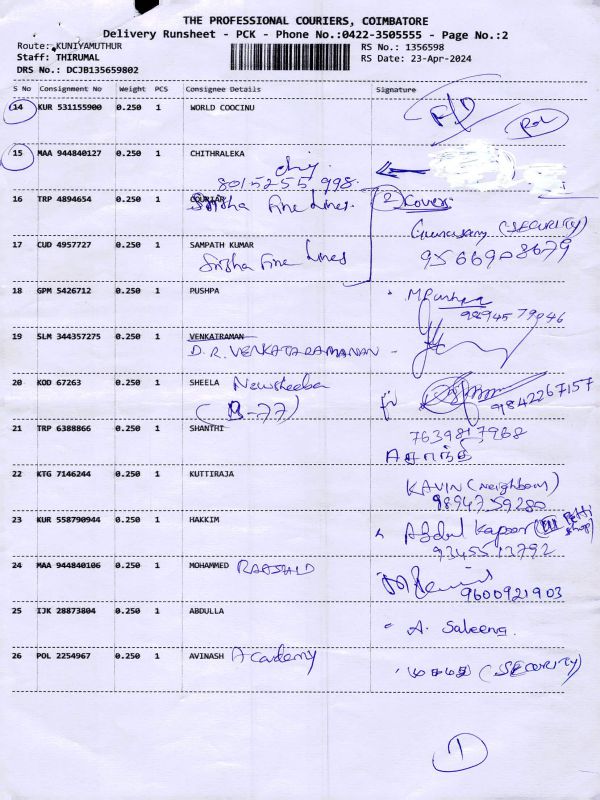 THE PROFESSIONAL COURIERS, COIMBATORE
Delivery Runsheet - PCK - Phone No.:0422-3505555 - Page No.:2
Route: KUNIYAMUTHUR
RS No.: 1356598
Staff: THIRUMAL
RS Date: 23-Apr-2024
DRS No.: DCJB135659802
S No Consignment No Weight PCS Consignee Details Signature
14 KUR 531155900 0.250 1 WORLD COOCINU
15 MAA 944840127 0.250 1 CHITHRALEKA
8015255 998
16 TRP 4894654 0.250 1 COURIAR Srisha Fine Lines. 2 Covers
17 CUD 4957727 0.250 1 SAMPATH KUMAR (SECURITY)
Srisha Fine Lines 9566908679
18 GPM 5426712 0.250 1 PUSHPA M Pushpa
9894579046
19 SLM 344357275 0.250 1 VENKATRAMAN
D.R. VENKATARAMANAN -
20 KOD 67263 0.250 1 SHEELA Newsheeba
9842267157
(B-77)
21 TRP 6388866 0.250 1 SHANTHI 7639817968
22 KTG 7146244 0.250 1 KUTTIRAJA KAVIN (Neighbour)
9894759280
23 KUR 558790944 0.250 1 HAKKIM Abdul Kapoor (Petti shop)
9345513792
24 MAA 944840106 0.250 1 MOHAMMED RAASHID
9600921903
25 IJK 28873804 0.250 1 ABDULLA A. Saleena.
26 POL 2254967 0.250 1 AVINASH Academy (SECURITY)
1